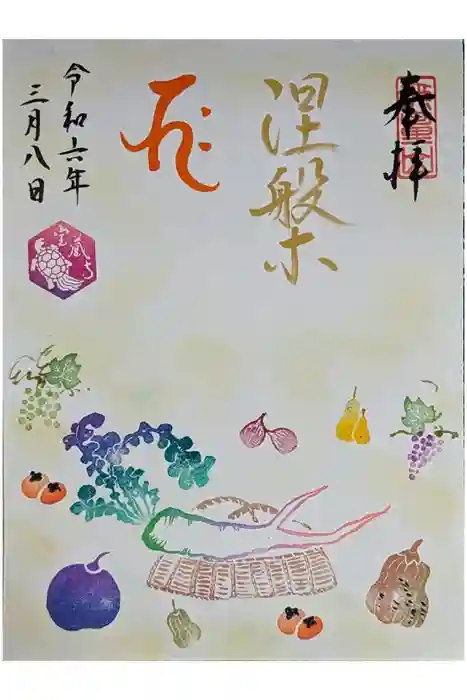 奉拝
涅槃
令和六年
三月八日